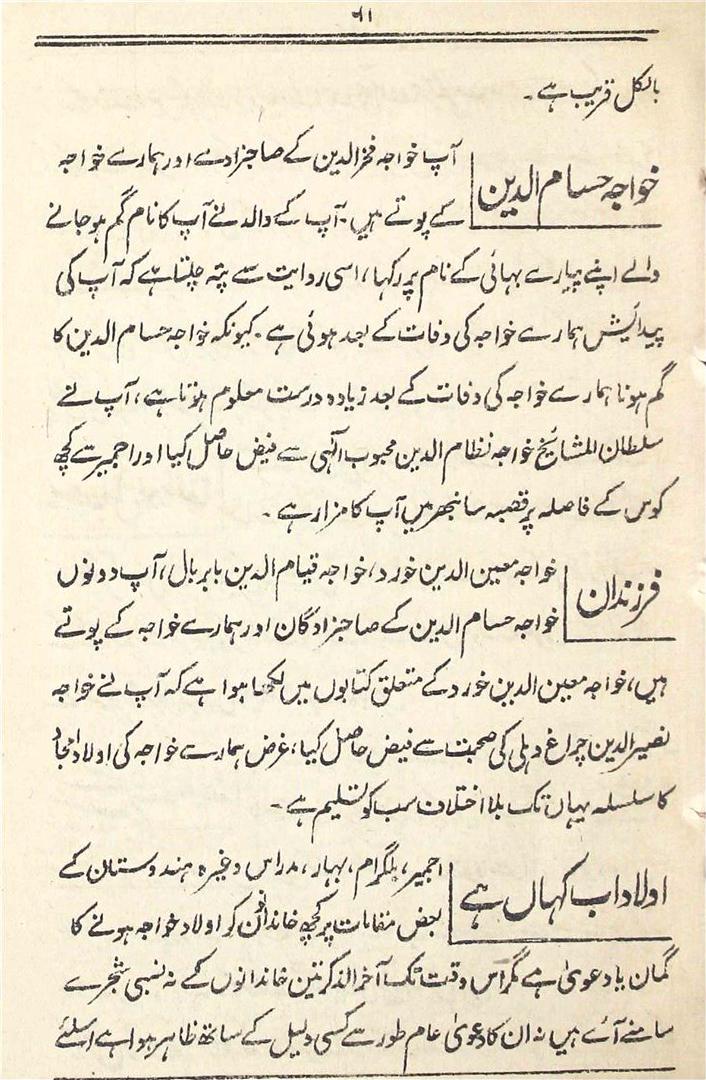 ۶۱
بالکل قریب ہے۔
خواجہ حسام الدین
آپ خواجہ فخر الدین کے صاحبزادے اور ہمارے خواجہ
کے پوتے ہیں۔ آپ کے والد نے آپ کا نام گم ہو جانے
والے اپنے پیارے بہائی کے نام پر رکہا، اسی روایت سے پتہ چلتا ہے کہ آپ کی
پیدائش ہمارے خواجہ کی وفات کے بعد ہوئی ہے۔ کیونکہ خواجہ حسام الدین کا
گم ہونا ہمارے خواجہ کی وفات کے بعد زیادہ درست معلوم ہوتا ہے، آپ نے
سلطان المشائخ خواجہ نظام الدین محبوب الٰہی سے فیض حاصل کیا اور اجمیر سے کچھ
کوس کے فاصلہ پر قصبہ سانبھر میں آپ کا مزار ہے۔
فرزندان
خواجہ معین الدین خورد، خواجہ قیام الدین بابر بال، آپ دونوں
خواجہ حسام الدین کے صاحبزادگان اور ہمارے خواجہ کے پوتے
ہیں، خواجہ معین الدین خورد کے متعلق کتابوں میں لکھا ہوا ہے کہ آپ نے خواجہ
نصیر الدین چراغ دہلی کی صحبت سے فیض حاصل کیا، غرض ہمارے خواجہ کی اولاد امجاد
کا سلسلہ یہاں تک بلا اختلاف سب کو تسلیم ہے۔
اولاد اب کہاں ہے
اجمیر، بلگرام، بہار، مدراس وغیرہ ہندوستان کے
بعض مقامات پر کچھ خاندانوں کو اولاد خواجہ ہونے کا
گمان یا دعویٰ ہے مگر اس وقت تک آخر الذکر تین خاندانوں کے نہ نسبی شجرے
سامنے آئے ہیں نہ ان کا دعویٰ عام طور سے کسی دلیل کے ساتھ ظاہر ہوا ہے اسلئے